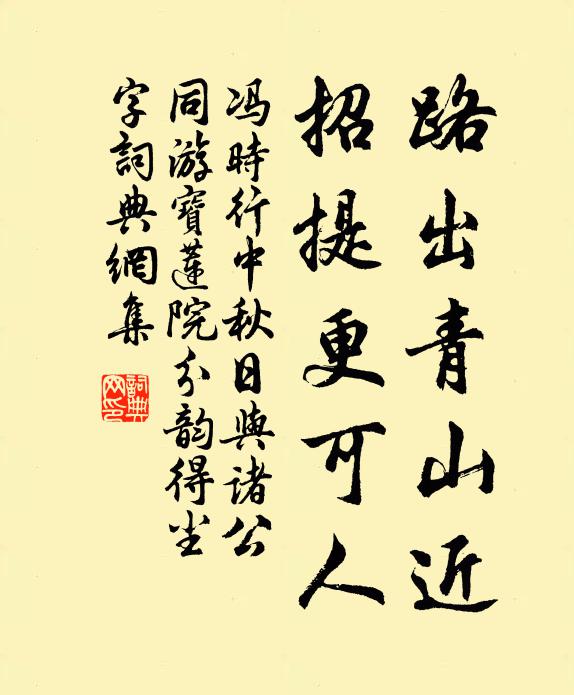 路出青山近
招提更可人
冯時行中秋日與諸公
同游寶蓮院分韵得尘
字詞典網集
詞典网印